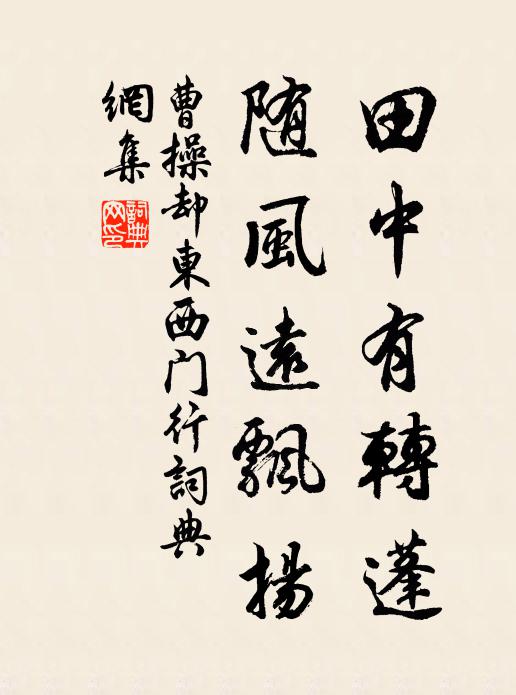 田中有轉蓬
随風遠飄揚
曹操却東西门行詞典
網集
詞典
网印